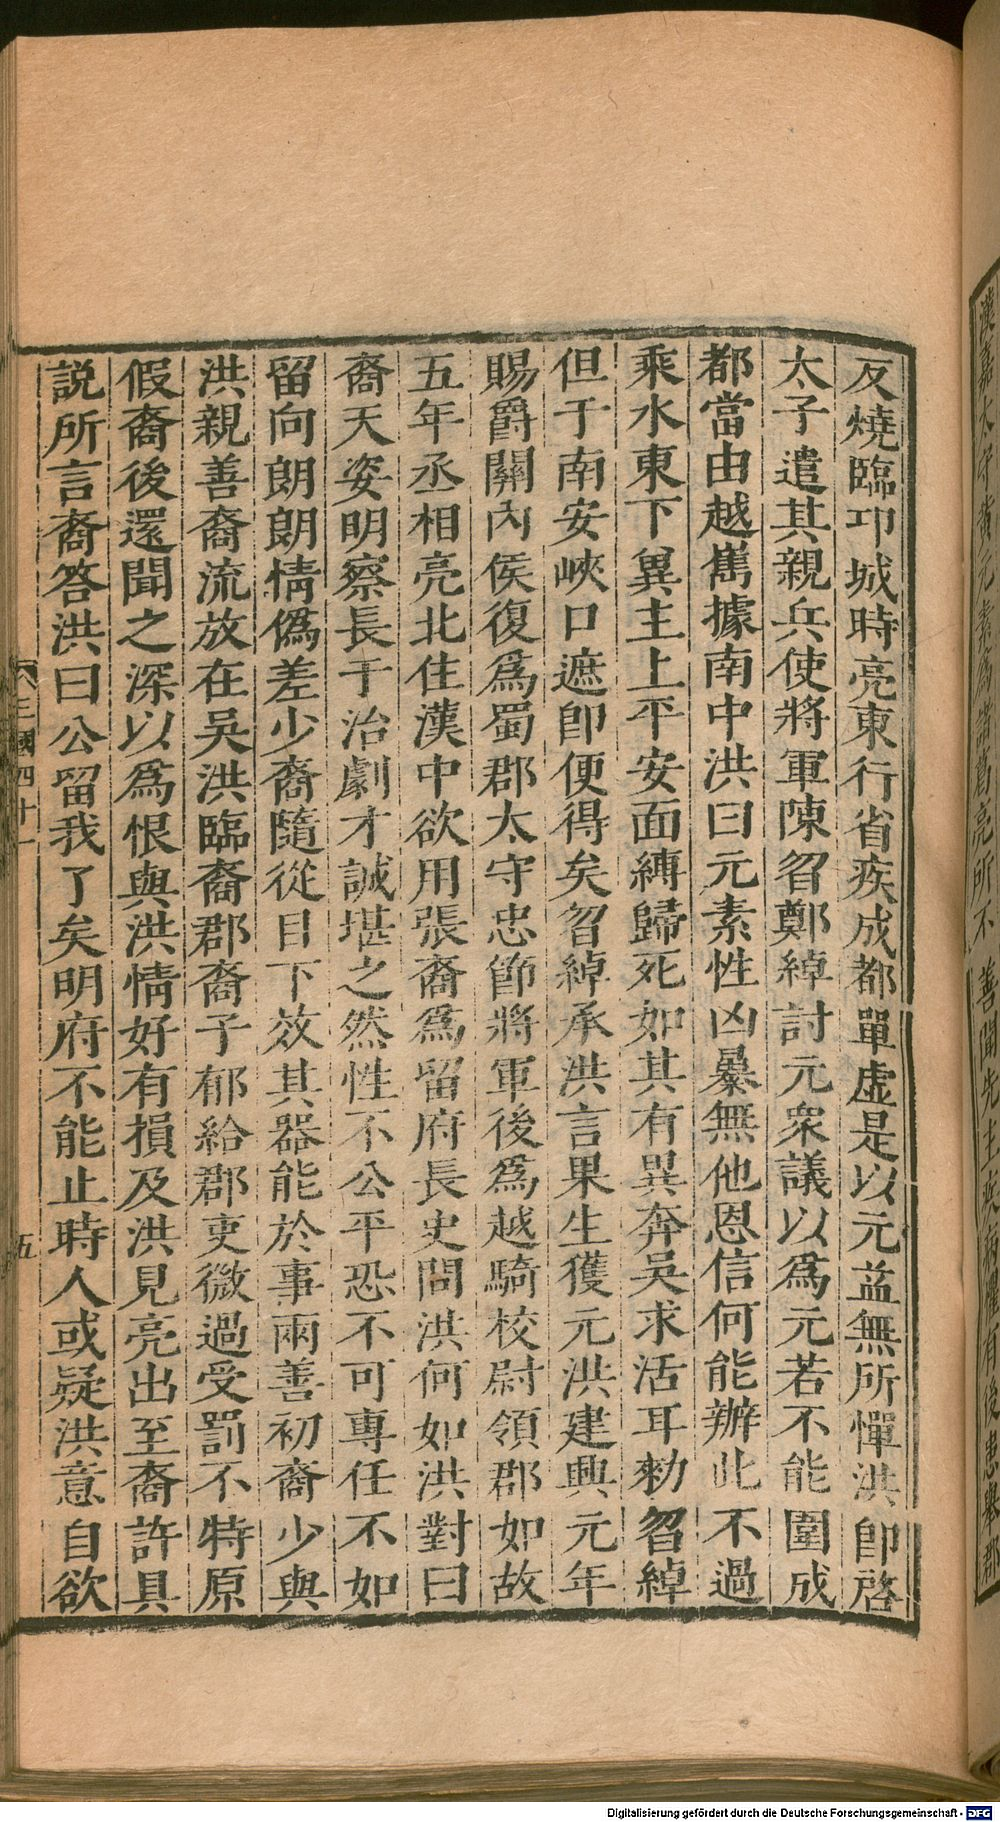 漢嘉太守黃元素爲諸葛亮所不善聞先主疾病懼有後患舉郡
反燒臨卭城時亮東行省疾成都單虛是以元益無所憚洪卽啓
太子遣其親兵使將軍陳曶鄭綽討元衆議以爲元若不能圍成
都當由越雋據南中洪曰元素性凶暴無他恩信何能辦此不過
乘水東下異主上平安面縛歸死如其有異奔吳求活耳勑曶綽
但于南安峽口遮卽便得矣曶綽承洪言果生獲元洪建興元年
賜爵關內侯復爲蜀郡太守忠節將軍後爲越騎校尉領郡如故
五年丞相亮北住漢中欲用張裔爲留府長史問洪何如洪對曰
裔天姿明察長于治劇才誠堪之然性不公平恐不可專任不如
留向朗朗情僞差少裔隨從目下效其器能於事兩善初裔少與
洪親善裔流放在吳洪臨裔郡裔子郁給郡吏微過受罰不特原
假裔後還聞之深以爲恨與洪情好有損及洪見亮出至裔許具
説所言裔答洪曰公留我了矣明府不能止時人或疑洪意自欲
三國四十一
五
Digitalisierung gefördert durch die Deutsche Forschungsgemeinschaft - DFG